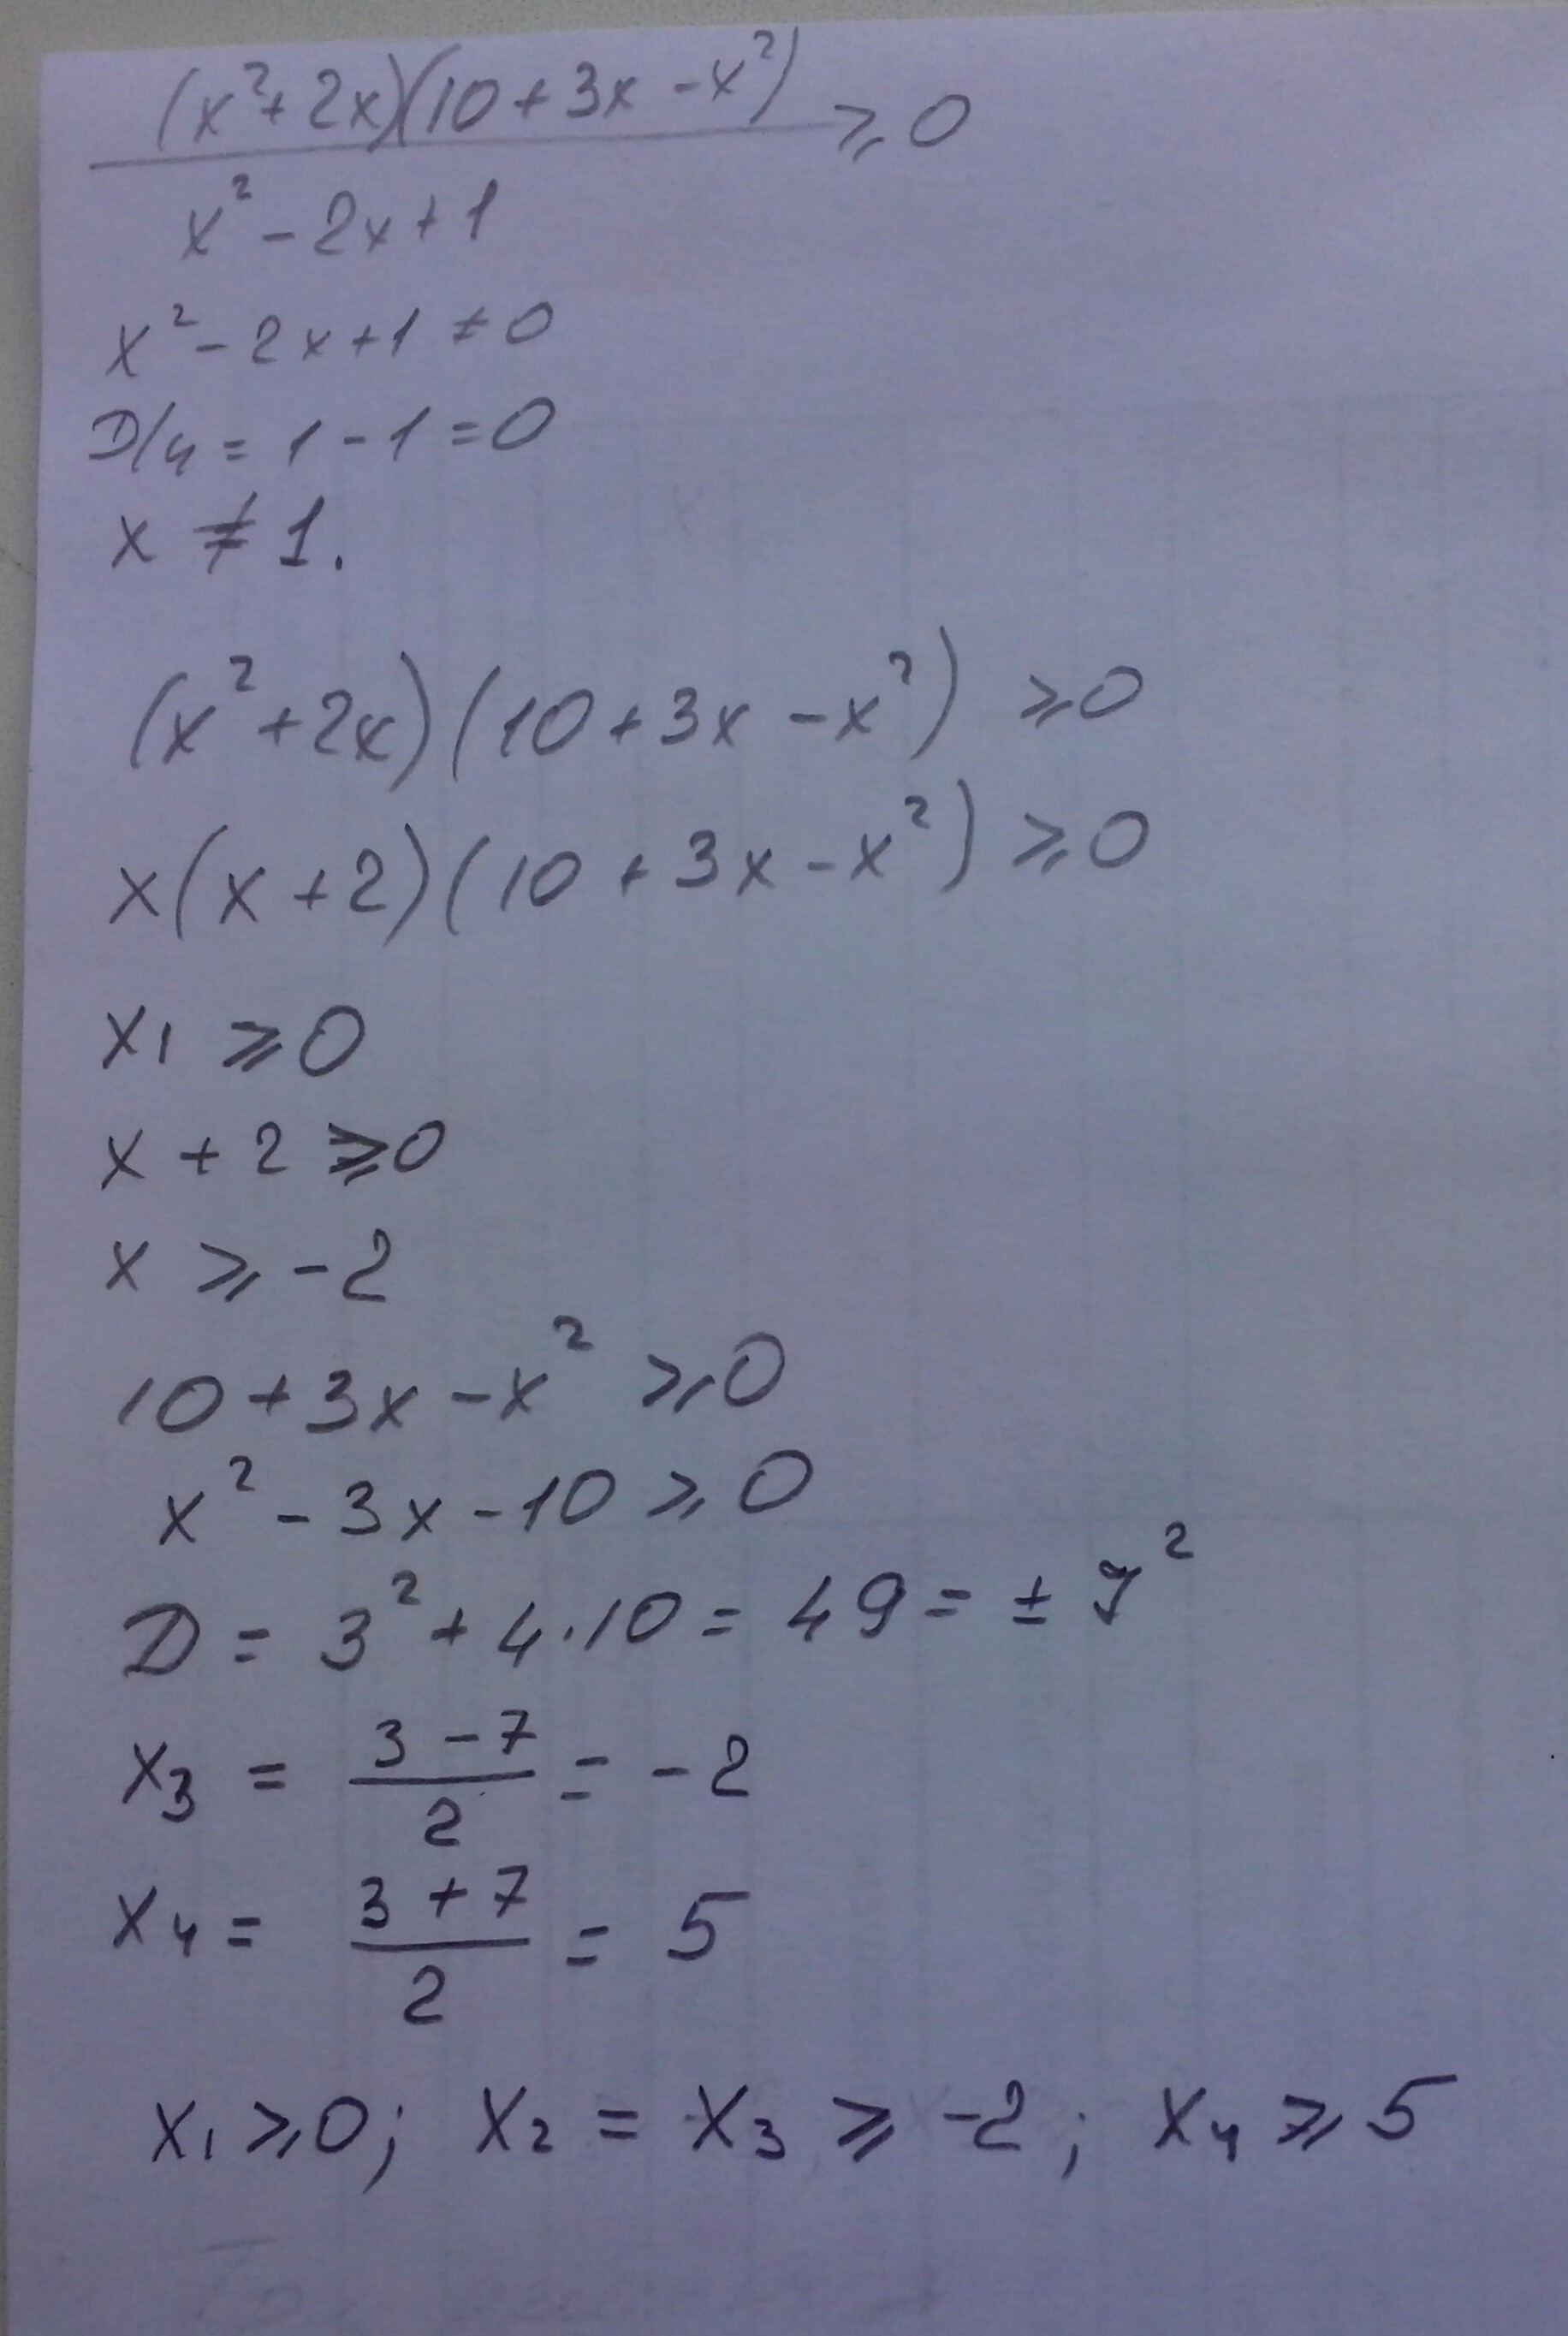 (x²+2x)(10+3x-x²)
≥0
x²-2x+1
x²-2x+1≠0
D/4=1-1=0
x≠1.
(x²+2x)(10+3x-x²)≥0
x(x+2)(10+3x-x²)≥0
x₁≥0
x+2≥0
x≥-2
10+3x-x²≥0
x²-3x-10≥0
D=3²+4·10=49=±7²
x₃=(3-7)/2=-2
x₄=(3+7)/2=5
x₁≥0; x₂=x₃≥-2; x₄≥5